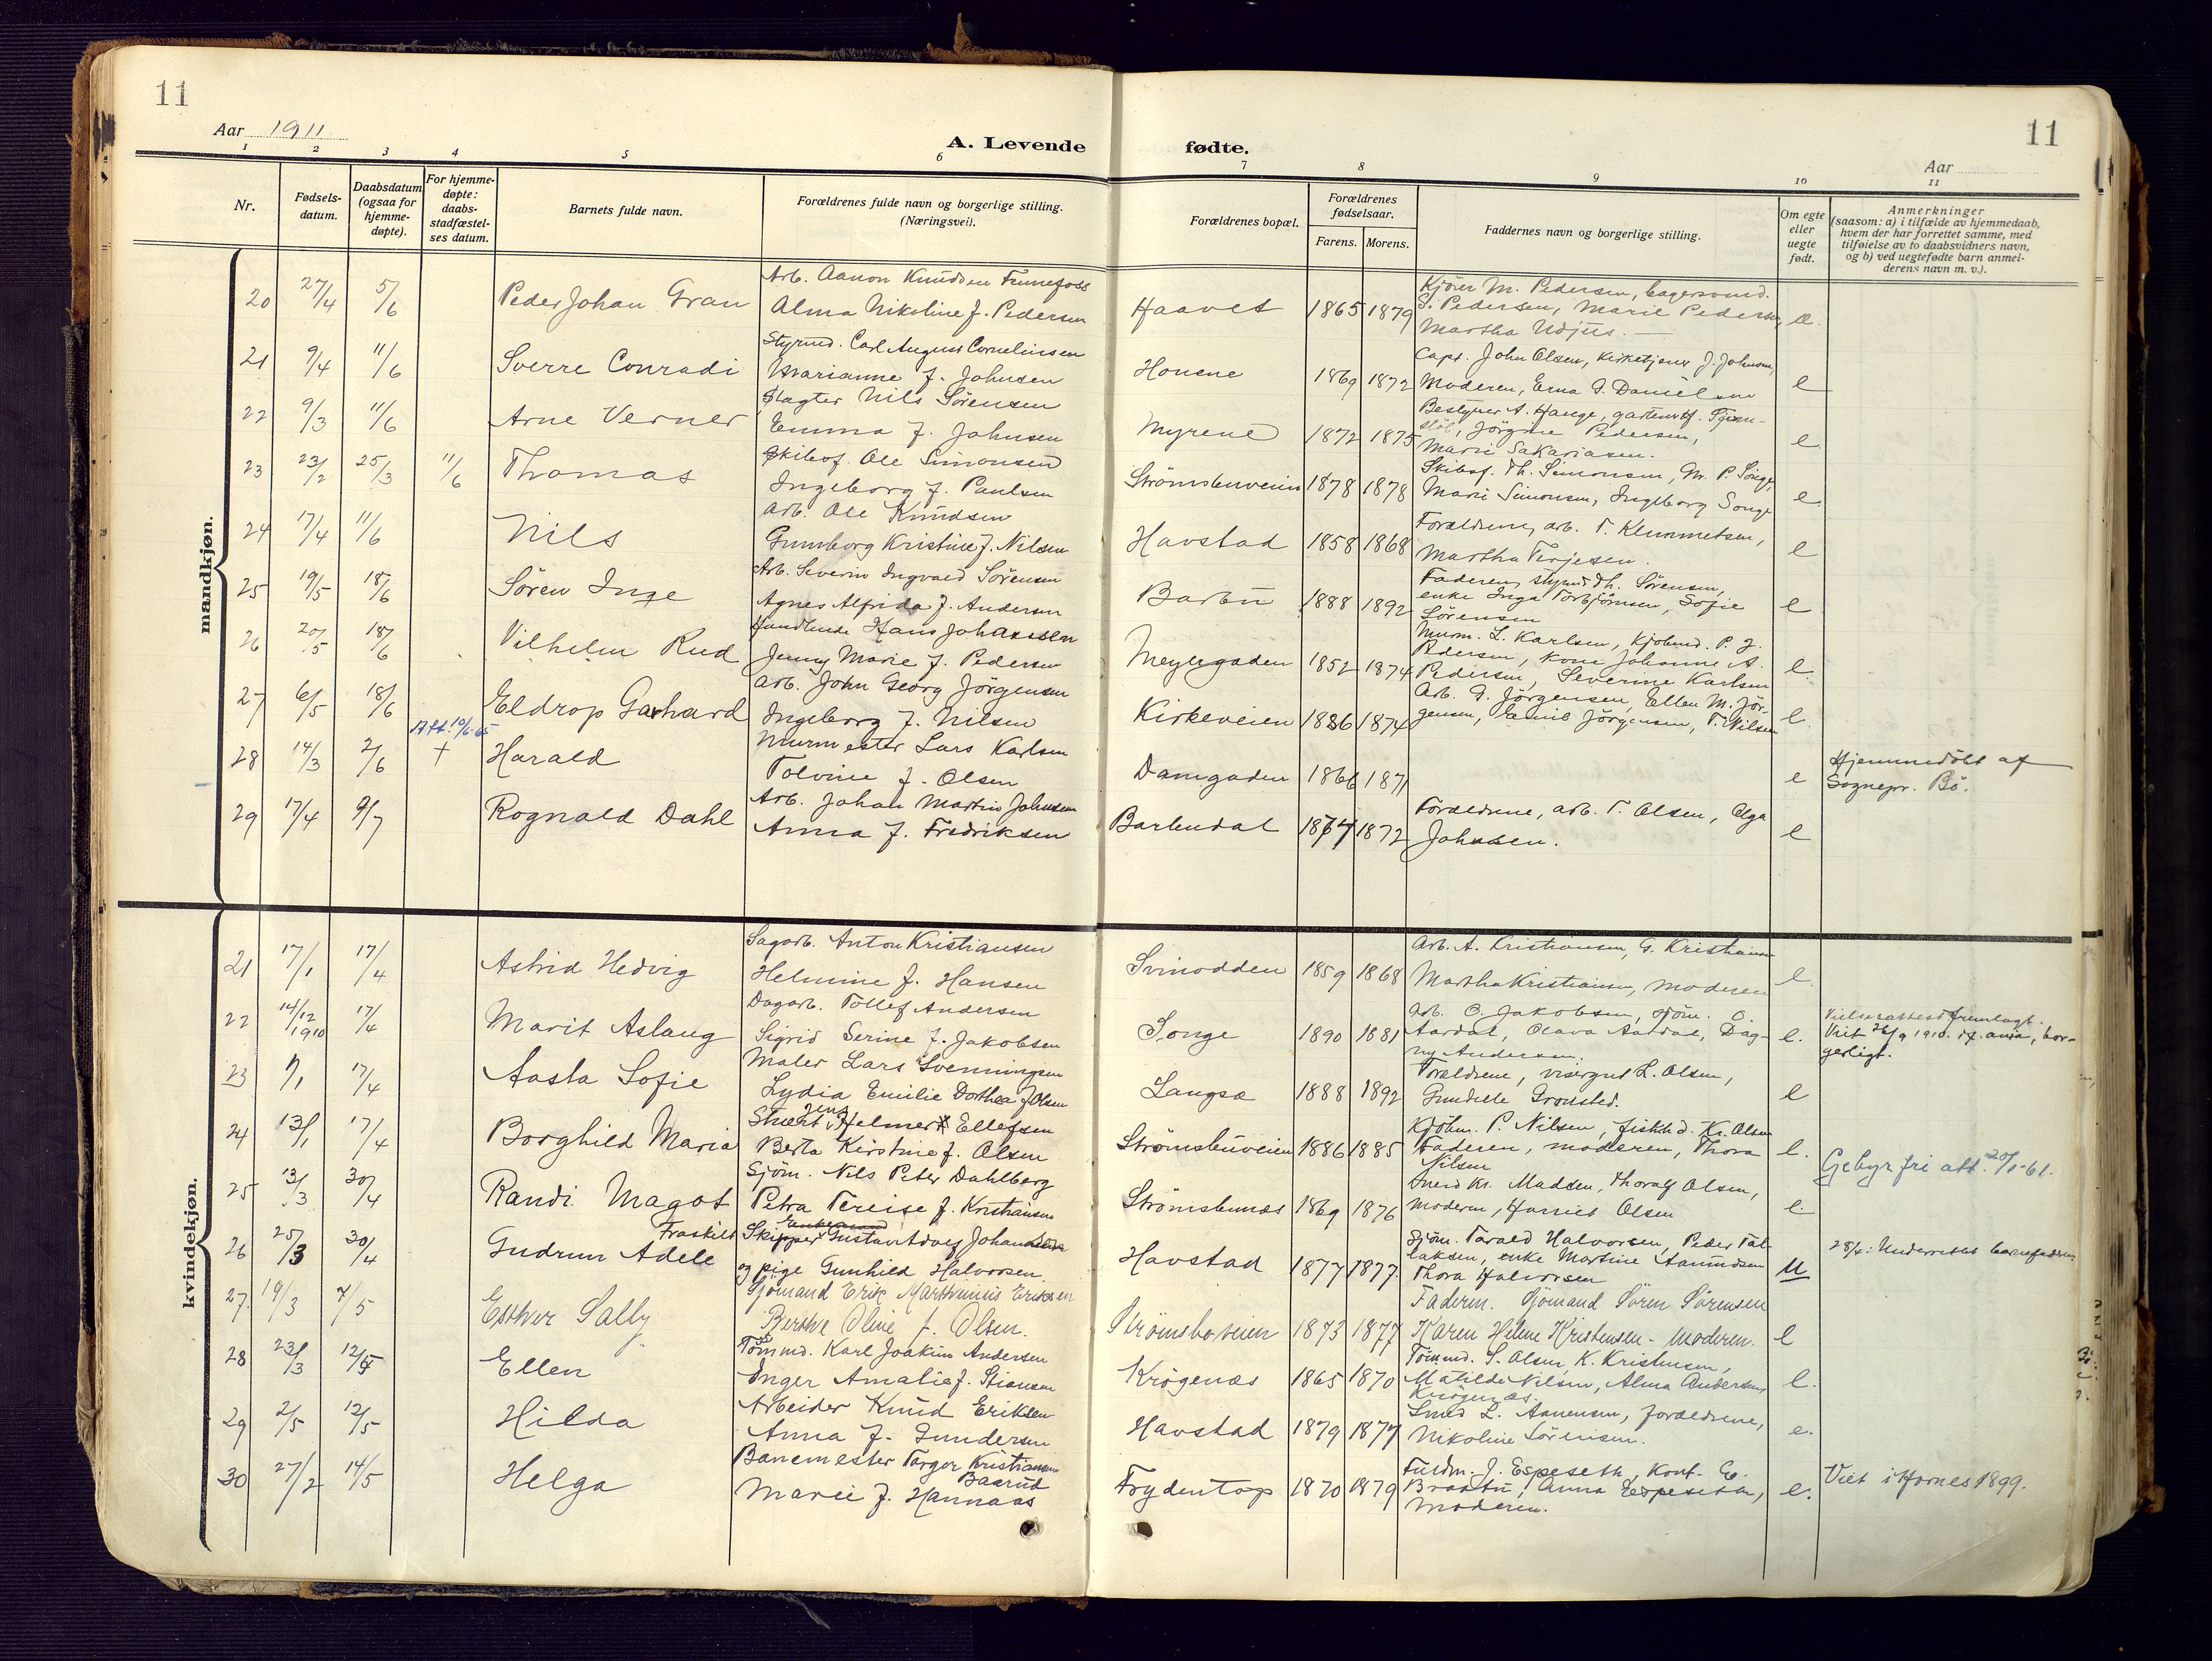 11
11
Aar 1911
A. Levende
fødte.
Aar
1 2 3 4 5 6 7 8 9 10 11
Nr.
Fødsels-
datum.
Daabsdatum
(ogsaa for
hjemme-
døpte).
For hjemme-
døpte:
daabs-
stadfæstel-
ses datum.
Barnets fulde navn.
Forældrenes fulde navn og borgerlige stilling.
(Næringsvei).
Forældrenes bopæl.
Forældrenes
fødselsaar.
Farens. Morens.
Faddernes navn og borgerlige stilling.
Om egte
eller
uegte
født.
Anmerkninger
(saasom: a) i tilfælde av hjemmedaab,
hvem der har forrettet samme, med
tilføielse av to daabsvidners navn,
og b) ved uegtefødte barn anmel-
derens navn m. v.).
mandkjøn.
20 27/4 5/6 Peder Johan Gran
Arb. Aanon Knudsen Fennefoss
Alma Nikoline f. Pedersen
Haavet 1865 1879
Kjører M. Pedersen,
S. Pedersen, Marie Pedersen,
Martha Udjus.
e.
21 9/4 11/6 Sverre Conradi
Styrmd. Carl August Corneliussen
Marianne f. Johnsen
Houene 1869 1872
Capt. John Olsen, Kirketjener J. Johnsen,
Moderen, Erna D. Danielsen
e
22 9/3 11/6 Arne Verner
Slagter Nils Sørensen
Emma f. Johnsen
Myrene 1872 1875
Bestyrer A. Hauge,
Jörgine Pedersen,
Marie Sakariasen.
e.
23 23/2 25/3 11/6 Thomas
Skibsf. Ole Simonsen
Ingeborg f. Paulsen
Strömsbuveien 1878 1878
Skibsf. Th. Simonsen, Gr. P. Songe,
Marie Simonsen, Ingeborg Songe
e.
24 17/4 11/6 Nils
Arb. Ole Knudsen
Gunborg Kristine f. Nilsen
Havstad 1858 1868
Forældrene, arb. T. Klemmetsen,
Martha Terjesen.
e
25 19/5 18/6 Sören Inge
Arb. Severin Ingvald Sörensen
Agnes Alfrida f. Andersen
Barbu 1888 1892
Faderen, styrmd Th. Sørensen,
enke Inga Torbjörnsen, Sofie
Sörensen
e
26 20/5 18/6 Vilhelm Rud
Handlende Hans Johanssen
Jenny Marie f. Pedersen
Meyergaden 1852 1874
Murm. L. Karlsen, Kjöbmd. P. J.
Pedersen, kone Johanne A.
Pedersen, Severine Karlsen
e.
27 6/5 18/6 Eldrop Gerhard
Arb. John Georg Jörgensen
Ingeborg f. Nilsen
Kirkeveien 1886 1874
Arb. G. Jörgensen, Ellen M. Jör-
gensen, Emil Jörgensen, T. Nilsen
e.
Att. 10/6-65
28 14/3 2/6 † Harald
Murmester Lars Karlsen
Tolvine f. Olsen
Damgaden 1866 1871
e
Hjemmedöbt af
Sognepr. Bö.
29 17/4 9/7 Rognald Dahl
Arb. Johan Martin Johnsen
Anna f. Fredriksen
Barbudal 1874 1872
Forældrene, arb. T. Olsen, Olga
Johnsen.
e
kvindekjøn.
21 17/1 17/4 Astrid Hedvig
Sagarb. Anton Kristiansen
Helmine f. Hansen
Svinodden 1859 1868
Arb. A. Kristiansen, G. Kristiansen
Martha Kristiansen, moderen
e.
22 14/12 1910 17/4 Marit Aslaug
Dagarb. Tollef Andersen
Sigrid Serine f. Jakobsen
Songe 1890 1881
Arb. O. Jakobsen, sjöm. O.
Aardal, Olava Aardal, Dag-
ny Andersen.
e.
Vielsesattest fremlagt.
Viet 26/9 1910 bor-
gerligt.
23 1/1 17/4 Aasta Sofie
Maler Lars Svenningsen
Lydia Emilie Dorthea f. Olsen
Langsæ 1888 1892
Forældrene, visergut L. Olsen,
Gunhilde Gronsted.
e
24 13/1 17/4 Borghild Maria
Stuert Jens Helmer Ellefsen
Berta Kirstine f. Olsen
Strömsbuveien 1886 1885
Kjöbm. P. Nilsen, fiskhd. Kr. Olsen
Faderen, moderen, Thora
Nilsen
e.
Gebyrfri att. 20/1-61.
25 13/3 30/4 Randi Magot
Sjöm. Nils Peter Dahlberg
Petra Tereise f. Kristiansen
Strömsbunæs 1869 1876
Smed Kr. Madsen, Thoralf Olsen,
moderen, Harriet Olsen
e.
26 25/3 30/4 Gudrun Adele
Fraskilt Skipper Gustav Adolf Johannessen
og pige Gunhild Halvorsen.
Havstad 1877 1877.
Sjöm. Tarald Halvorsen, Peder Tal-
laksen, enke Martine Aanundsen
Thora Halvorsen
U
28/4: Underrettet barnefaderen
27. 19/3 7/5 Esther Sally
Sjömand Erik Marthinius Eriksen
Berthe Oline f. Olsen.
Strömsboveien 1873 1877
Faderen. Sjömand Sören Sörensen
Karen Helene Kristensen - Moderen.
e
28 23/3 12/5 Ellen
Tömmd. Karl Joakim Andersen
Inger Amalie f. Stiansen
Krögenæs 1865 1870
Tömmd. S. Olsen, K. Kristensen,
Matilde Nilsen, Alma Andersen,
Krögenæs.
e.
29 2/5 12/5 Hilda
Arbeider Knud Eriksen
Anna f. Gundersen
Havstad 1879 1877
Smed L. Aanensen, forældrene,
Nikoline Sörensen.
e.
30 27/2 14/5 Helga
Banemester Targer Kristiansen
Baarud
Marie f. Hannaas
Frydentop 1870 1879
Fuldm. J. Espeseth, Kont. E.
Braatu, Anna Espeseth,
Moderen.
e.
Viet i Hornes 1899.